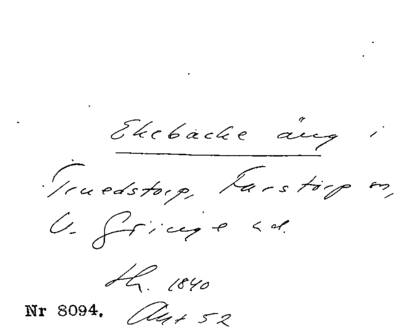 Ekebacke äng i
Truedstorp, Farstorp sn,
V. Göinge hd.
th. 1840
Nr 8094. Akt 52